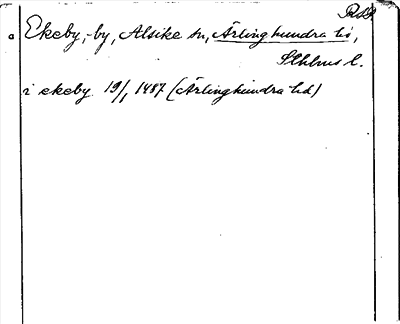 Ekeby, -by, Alsike sn, Ärlinghundra hd,
Sthlms l.
i ekeby 19/1 1487 (Ärlinghundra hd)